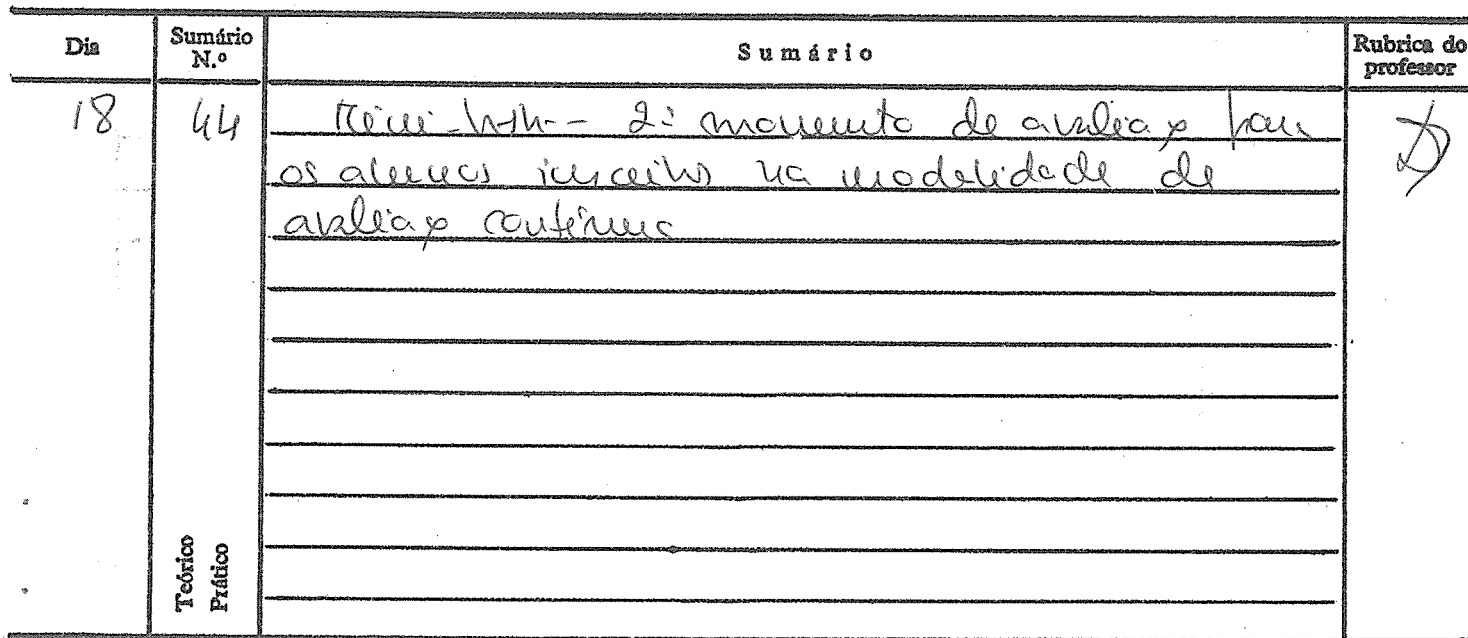 Dia
Sumário N.º
Sumário
Rubrica do professor
18
44
Mini-teste - 2º momento de avaliação para
os alunos inscritos na modalidade de
avaliação contínua
Teórico
Prático